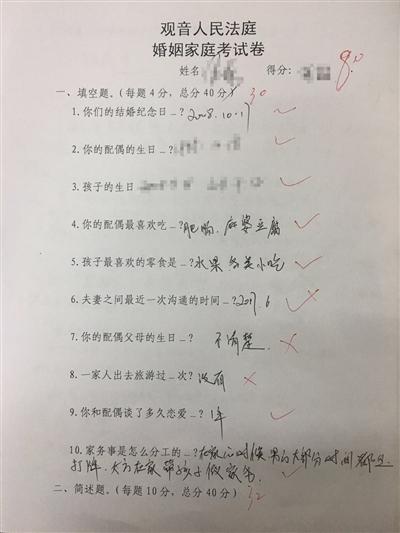 观音人民法庭
婚姻家庭考试卷
姓名 得分: 80
一、填空题。(每题 4 分,总分 40 分) 30
1.你们的结婚纪念日_?2008.10.17
2.你的配偶的生日_?
3.孩子的生日
4.你的配偶最喜欢吃_?肥肠、麻婆豆腐
5.孩子最喜欢的零食是_?水果 各类小吃
6.夫妻之间最近一次沟通的时间_?2017.6
7.你的配偶父母的生日_? 不清楚.
8.一家人出去旅游过_次?没有
9.你和配偶谈了多久恋爱_?1年
10.家务事是怎么分工的_?在家的时候 男的大部分时间都在
打牌、女方在家带孩子做家务
二、简述题。(每题 10 分,总分 40 分) 32